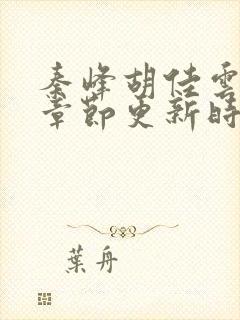 秦峰胡佳雲
章節更新時
葉舟